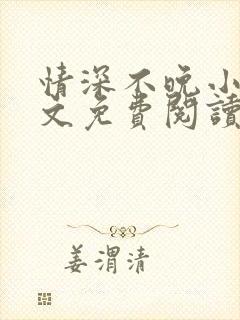 情深不晚小
文免費閱讀
姜渭清